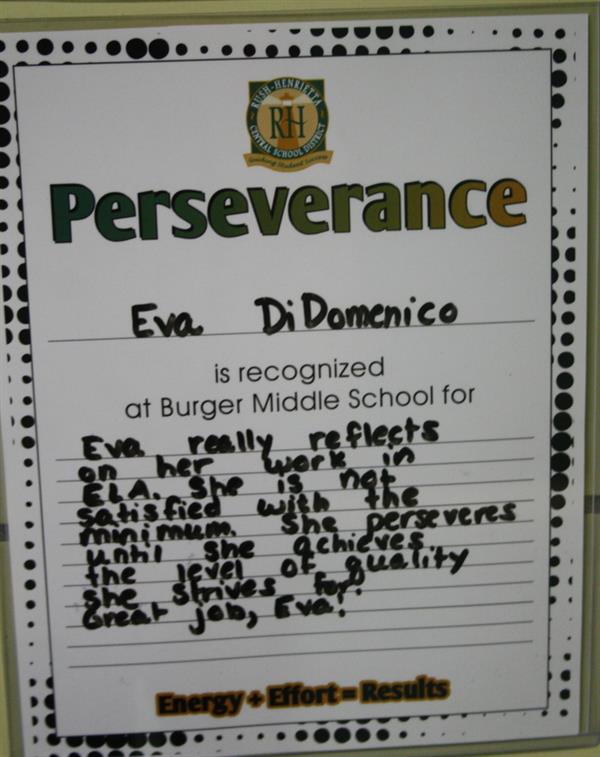 RUSH-HENRIETTA
RH
CENTRAL SCHOOL DISTRICT
Teaching Student Success
Perseverance
Eva DiDomenico
is recognized
at Burger Middle School for
Eva really reflects
on her work in
ELA. She is not
satisfied with the
minimum. She perseveres
until she achieves
the level of quality
she strives for!
Great job, Eva!
Energy + Effort = Results